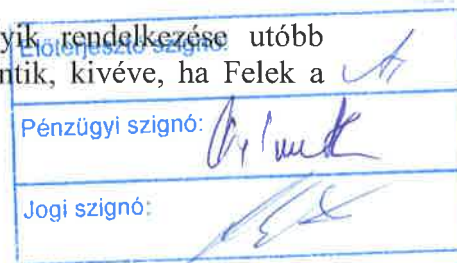 yik rendelkezése utóbb
Előterjesztő szignó:
ntik, kivéve, ha Felek a
Pénzügyi szignó:
Jogi szignó: